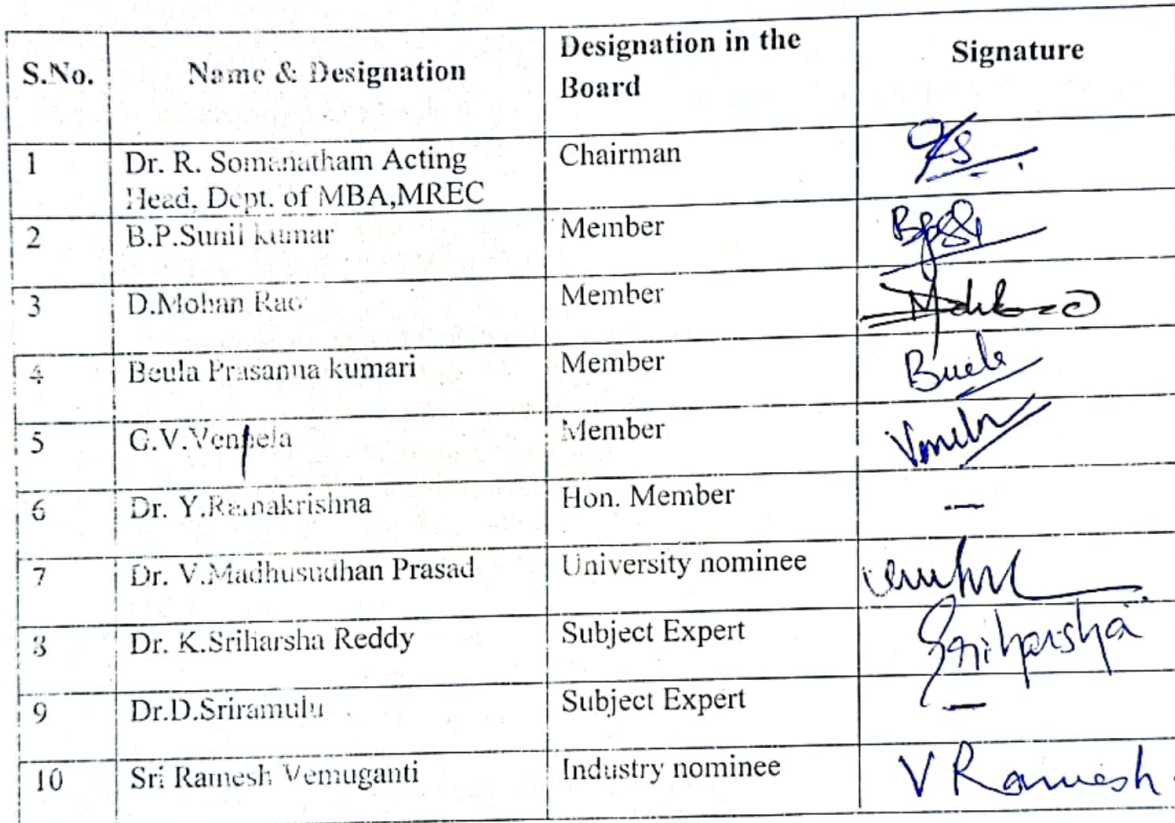 S.No. Name & Designation Designation in the Board Signature
1 Dr. R. Somanatham Acting Chairman
Head, Dept. of MBA,MREC
2 B.P.Sunil kumar Member
3 D.Mohan Rao Member
4 Beula Prasanna kumari Member
5 G.V.Vennela Member
6 Dr. Y.Ramakrishna Hon. Member —
7 Dr. V.Madhusudhan Prasad University nominee
8 Dr. K.Sriharsha Reddy Subject Expert Sriharsha
9 Dr.D.Sriramulu Subject Expert —
10 Sri Ramesh Vemuganti Industry nominee V Ramesh